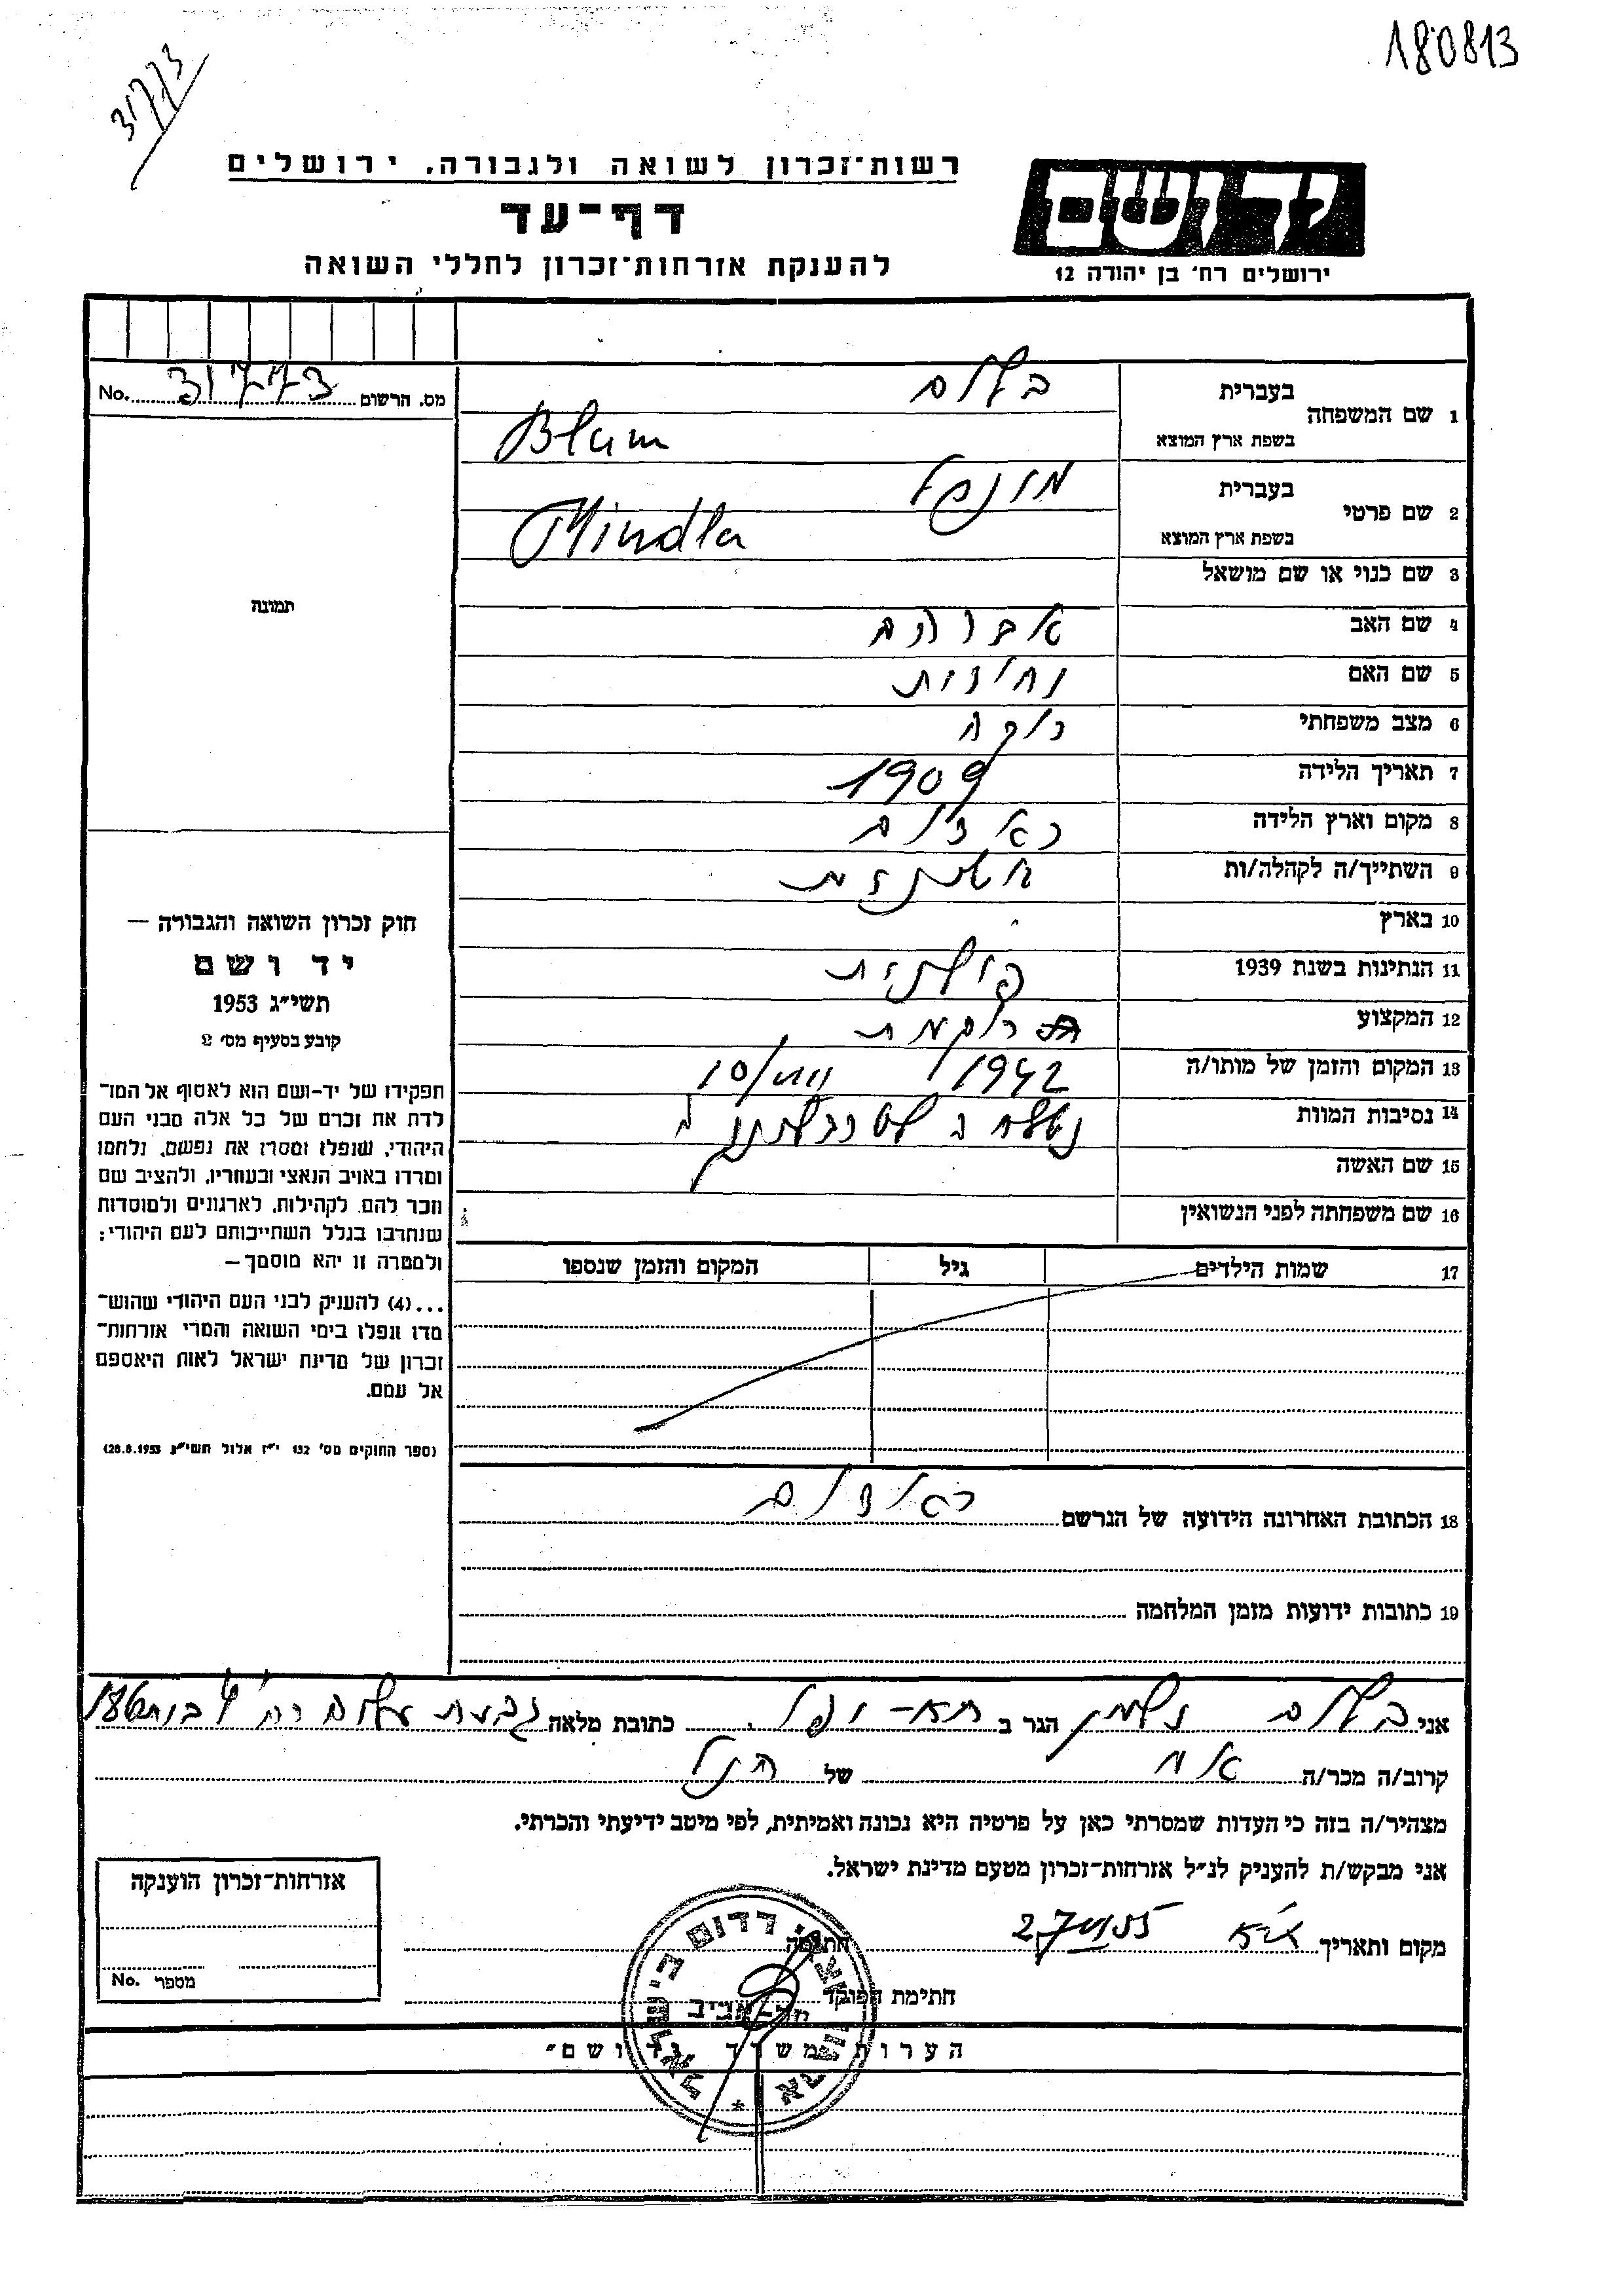 180813
31773
רשות־זכרון לשואה ולגבורה, ירושלים
דף־עד
להענקת אזרחות־זכרון לחללי השואה
יד ושם
ירושלים רח' בן יהודה 12
מס. הרשום 31773 No.
תמונה
חוק זכרון השואה והגבורה —
יד ושם
תשי״ג 1953
קובע בסעיף מס' 2
תפקידו של יד-ושם הוא לאסוף אל המו־
לדת את זכרם של כל אלה מבני העם
היהודי, שנפלו ומסרו את נפשם, נלחמו
ומרדו באויב הנאצי ובעוזריו, ולהציב שם
וזכר להם, לקהילות, לארגונים ולמוסדות
שנחרבו בגלל השתייכותם לעם היהודי;
ולמטרה זו יהא מוסמך —
...(4) להעניק לבני העם היהודי שהוש־
מדו ונפלו בימי השואה והמרי אזרחות־
זכרון של מדינת ישראל לאות היאספם
אל עמם.
(ספר החוקים מס' 132 י״ז אלול תשי״ג 28.8.1953)
1 שם המשפחה בעברית בלום
בשפת ארץ המוצא Blum
2 שם פרטי בעברית
בשפת ארץ המוצא Mindla
3 שם כנוי או שם מושאל
4 שם האב אברהם
5 שם האם
6 מצב משפחתי רוקה
7 תאריך הלידה 1909
8 מקום וארץ הלידה ראדום
9 השתייך/ה לקהלה/ות
10 בארץ
11 הנתינות בשנת 1939 פולנית
12 המקצוע רוקמת
13 המקום והזמן של מותו/ה 1942 10/VIII
14 נסיבות המוות
15 שם האשה
16 שם משפחתה לפני הנשואין
17 שמות הילדים גיל המקום והזמן שנספו
18 הכתובת האחרונה הידועה של הנרשם ראדום
19 כתובות ידועות מזמן המלחמה
אני בלום זלמן הגר ב תא - יפו כתובת מלאה גבעת עליה רח'
קרוב/ה מכר/ה אח של הנ״ל
מצהיר/ה בזה כי העדות שמסרתי כאן על פרטיה היא נכונה ואמיתית, לפי מיטב ידיעתי והכרתי.
אני מבקש/ת להעניק לנ״ל אזרחות־זכרון מטעם מדינת ישראל.
מקום ותאריך ת״א 27.VI.55
חתימה
חתימת הפוקד
אזרחות־זכרון הוענקה
מספר No.
הערות משרד ״יד ושם״
ארגון יוצאי רדום בישראל *
תל-אביב